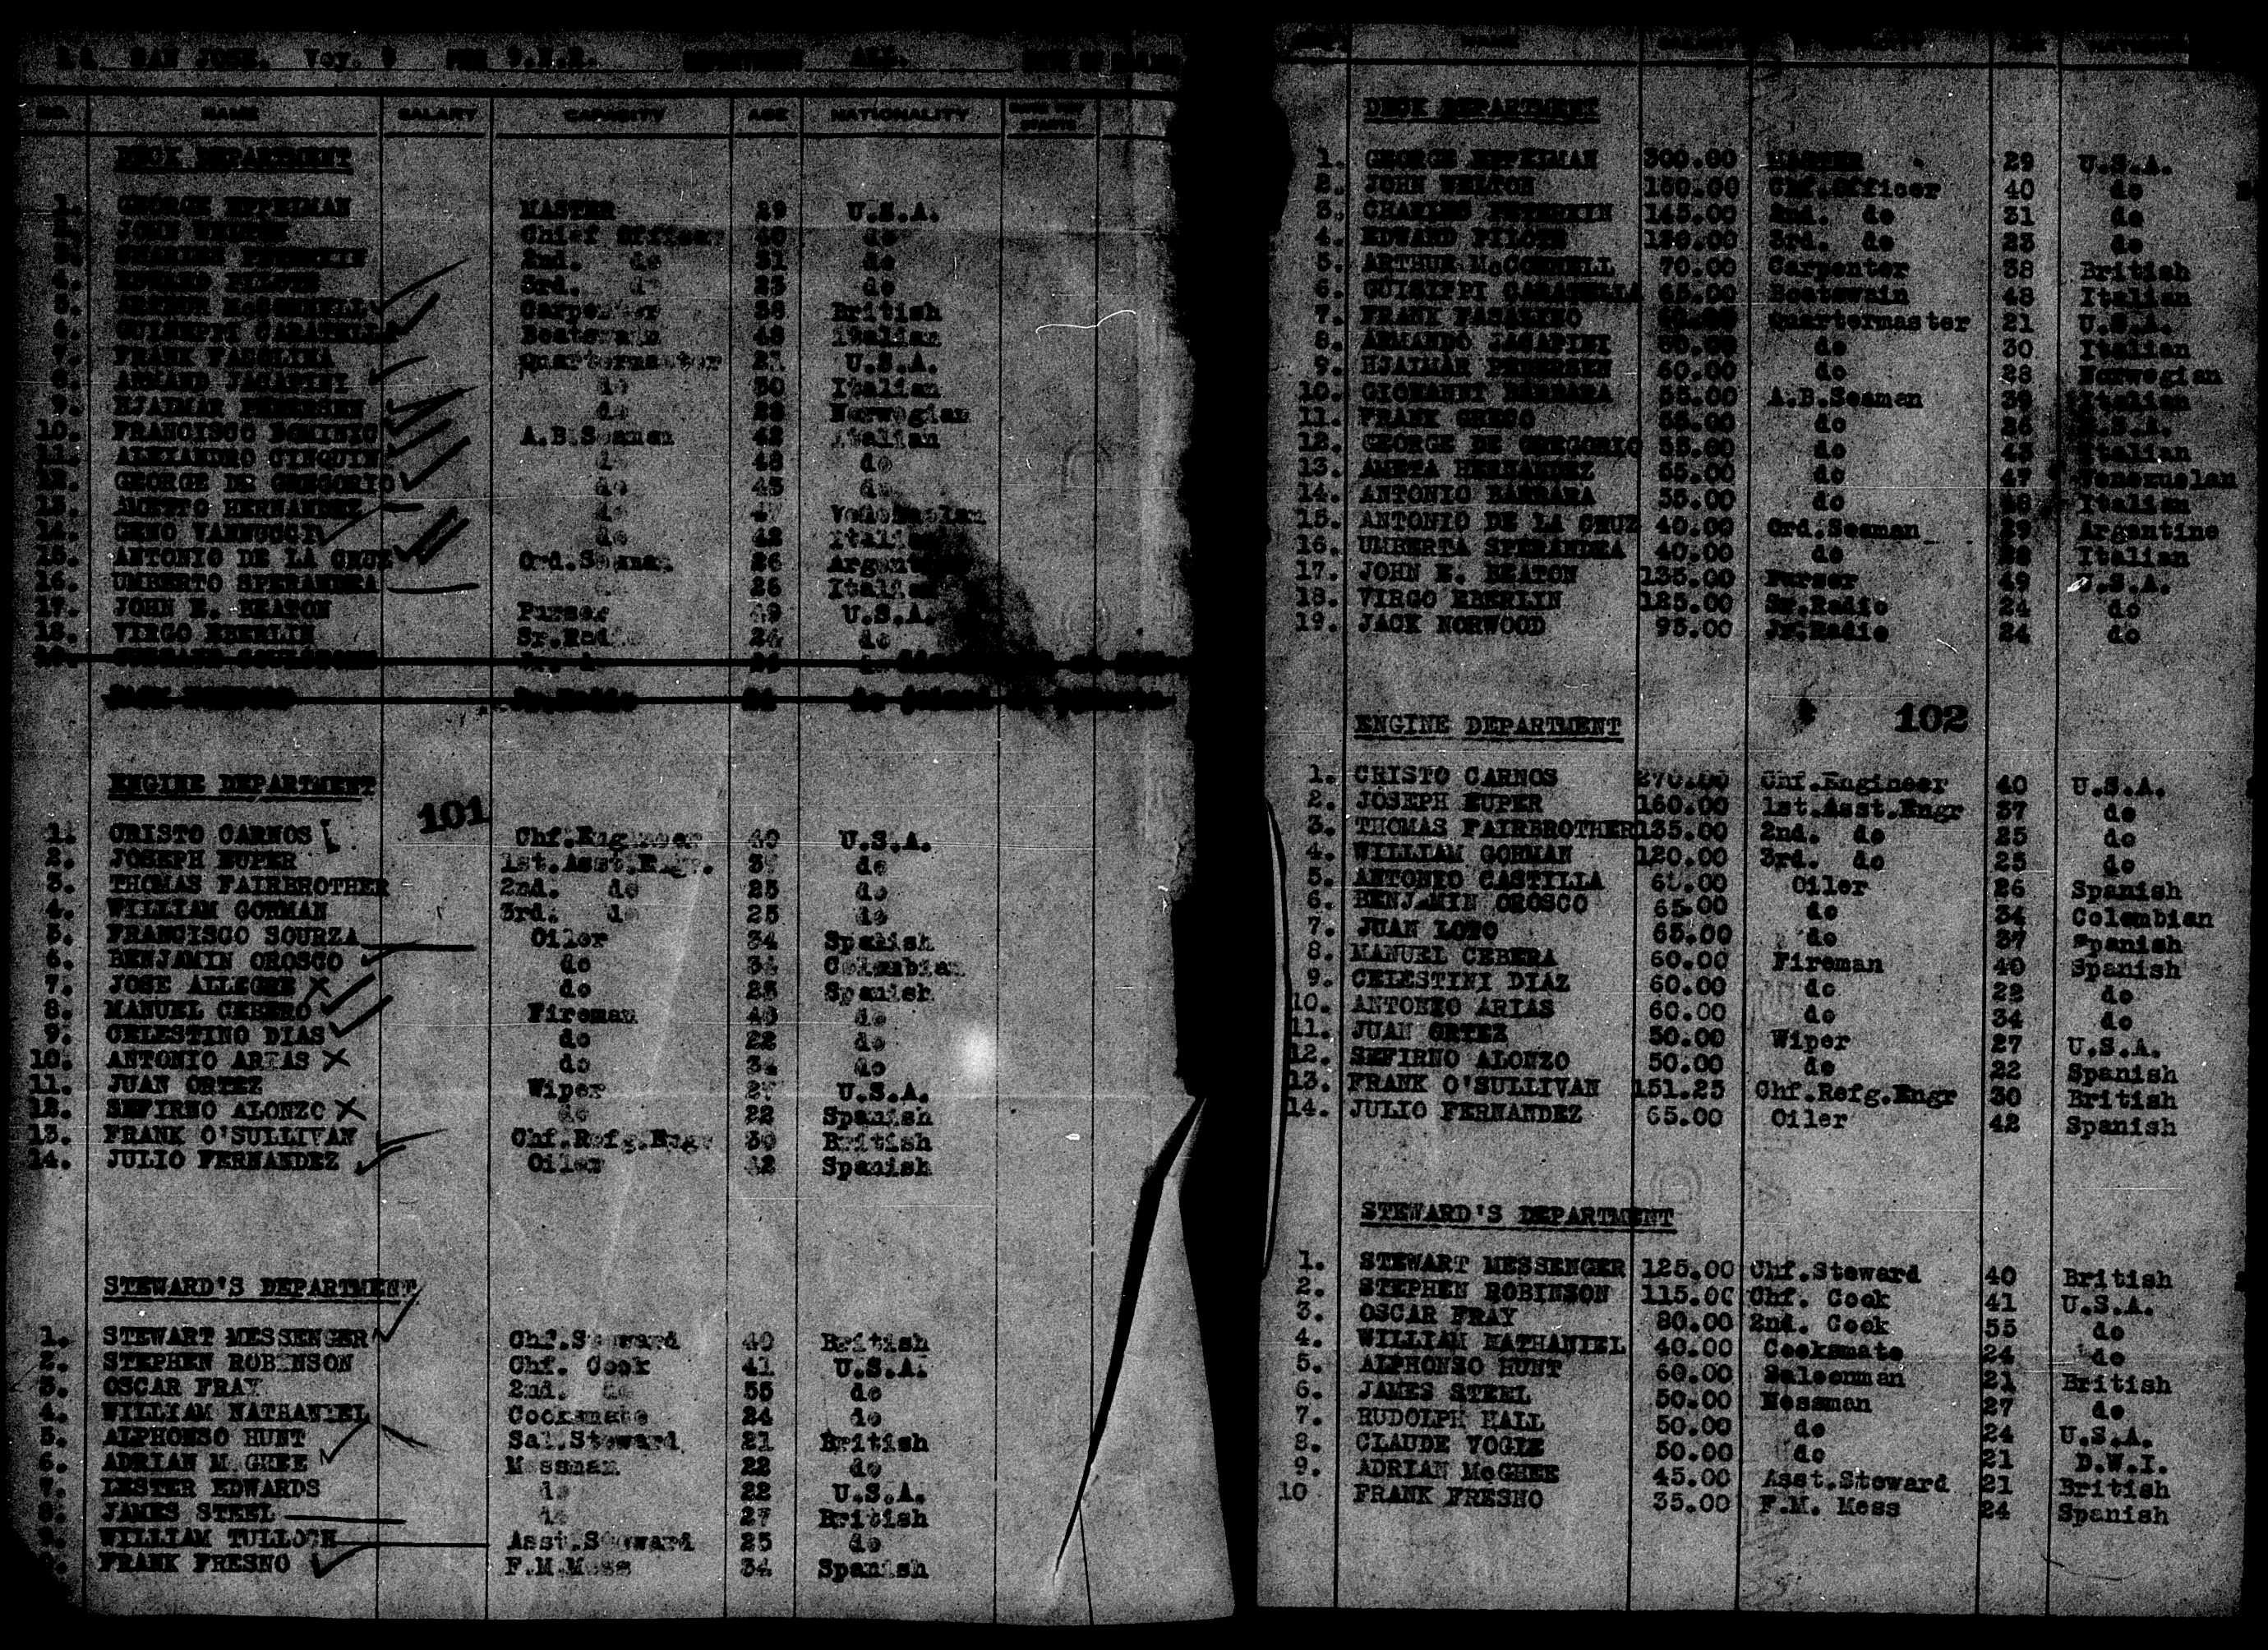 SAN JOSE. Voy. 9
NAME SALARY CAPACITY AGE NATIONALITY
DECK DEPARTMENT
1. GEORGE MASTER 29 U.S.A.
JOHN WELTON Chief Officer 40 do
2nd. do 31 do
4. EDWARD 3rd. do 23 do
5. Carpenter 38 British
6. Boatswain 48 Italian
7. FRANK Quartermaster 21 U.S.A.
8. ARMAND JAGAPINI do 30 Italian
9. HJAIMAR PEDERSEN do 28 Norwegian
10. FRANCISCO A.B.Seaman 42 Italian
11. ALEXANDRO do 48 do
12. GEORGE DE GREGORIO do 43 do
13. HERNANDEZ do Venezuelan
14. do 42 Italian
15. ANTONIO DE LA CRUZ Ord.Seaman 26 Argentine
16. UMBERTO SPERANDRA 26 Italian
17. JOHN E. HEATON Purser 49 U.S.A.
18. VIRGO EBERLIN Sr.Radio 24 do
ENGINE DEPARTMENT
101
1. CRISTO CARNOS Chf.Engineer 40 U.S.A.
2. JOSEPH HUPER 1st.Asst.Engr. 37 do
3. THOMAS FAIRBROTHER 2nd. do 25 do
4. WILLIAM GORMAN 3rd. do 25 do
5. FRANCISCO SOURZA Oiler 34 Spanish
6. BENJAMIN OROSCO do 34 Colombian
7. JOSE ALLEGRE X do 25 Spanish
8. MANUEL CEBERO Fireman 40 do
9. CELESTINO DIAS do 22 do
10. ANTONIO ARIAS X do 34 do
11. JUAN ORTEZ Wiper 27 U.S.A.
12. SEFIRNO ALONZO X do 22 Spanish
13. FRANK O'SULLIVAN Chf.Refg.Engr 30 British
14. JULIO FERNANDEZ Oiler 42 Spanish
STEWARD'S DEPARTMENT
1. STEWART MESSENGER Chf.Steward 40 British
2. STEPHEN ROBINSON Chf. Cook 41 U.S.A.
3. OSCAR FRAY 2nd. do 55 do
4. WILLIAM NATHANIEL Cooksmate 24 do
5. ALPHONSO HUNT Sal.Steward 21 British
6. ADRIAN McGHEE Messman 22 do
7. LESTER EDWARDS do 22 U.S.A.
8. JAMES STEEL do 27 British
9. WILLIAM TULLOCH Asst.Steward 25 do
FRANK FRESNO F.M.Mess 34 Spanish
DECK DEPARTMENT
1. GEORGE 300.00 MASTER 29 U.S.A.
2. JOHN WELTON 150.00 Chf.Officer 40 do
3. CHARLES 145.00 2nd. do 31 do
4. EDWARD 3rd. do 23 do
5. ARTHUR McCONNELL 70.00 Carpenter 38 British
6. 65.00 Boatswain 48 Italian
7. FRANK Quartermaster 21 U.S.A.
8. ARMANDO JAGAPINI 60.00 do 30 Italian
9. HJAIMAR PEDERSEN 60.00 do 28 Norwegian
10. GIOVANNI BARBARA 55.00 A.B.Seaman 39 Italian
11. FRANK GREGO 55.00 do 26 U.S.A.
12. GEORGE DE GREGORIO 55.00 do 43 Italian
13. HERNANDEZ 55.00 do 47 Venezuelan
14. ANTONIO BARBARA 55.00 do Italian
15. ANTONIO DE LA CRUZ 40.00 Ord.Seaman 29 Argentine
16. UMBERTA SPERANDRA 40.00 do Italian
17. JOHN E. HEATON 135.00 Purser 49 U.S.A.
18. VIRGO EBERLIN 125.00 Sr.Radio 24 do
19. JACK NORWOOD 95.00 Jr.Radio 24 do
ENGINE DEPARTMENT
102
1. CRISTO CARNOS 270.00 Chf.Engineer 40 U.S.A.
2. JOSEPH HUPER 160.00 1st.Asst.Engr 37 do
3. THOMAS FAIRBROTHER 135.00 2nd. do 25 do
4. WILLIAM GORMAN 120.00 3rd. do 25 do
5. ANTONIO CASTILLA 65.00 Oiler 26 Spanish
6. BENJAMIN OROSCO 65.00 do 34 Colombian
7. JUAN LOTO 65.00 do 37 Spanish
8. MANUEL CEBERA 60.00 Fireman 40 Spanish
9. CELESTINI DIAZ 60.00 do 22 do
10. ANTONIO ARIAS 60.00 do 34 do
11. JUAN ORTEZ 50.00 Wiper 27 U.S.A.
12. SEFIRNO ALONZO 50.00 do 22 Spanish
13. FRANK O'SULLIVAN 151.25 Chf.Refg.Engr 30 British
14. JULIO FERNANDEZ 65.00 Oiler 42 Spanish
STEWARD'S DEPARTMENT
1. STEWART MESSENGER 125.00 Chf.Steward 40 British
2. STEPHEN ROBINSON 115.00 Chf. Cook 41 U.S.A.
3. OSCAR FRAY 80.00 2nd. Cook 55 do
4. WILLIAM NATHANIEL 40.00 Cooksmate 24 do
5. ALPHONSO HUNT 60.00 Saloonman 21 British
6. JAMES STEEL 50.00 Messman 27 do
7. RUDOLPH HALL 50.00 do 24 U.S.A.
8. CLAUDE VOGIE 50.00 do 21 D.W.I.
9. ADRIAN McGHEE 45.00 Asst.Steward 21 British
10 FRANK FRESNO 35.00 F.M. Mess 24 Spanish